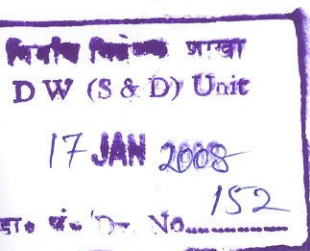 शाखा
D W (S & D) Unit
17 JAN 2008
डा० सं० Dy. No. 152